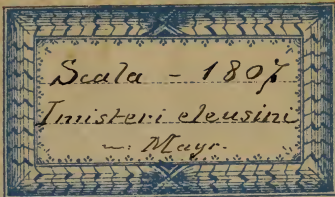 Scala - 1807
I misteri eleusini
m: Mayr.